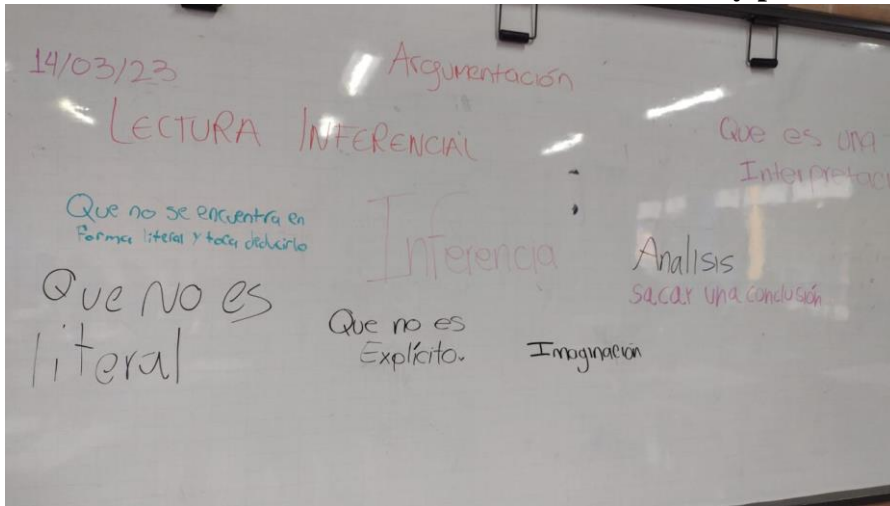 14/03/23
Argumentación
LECTURA INFERENCIAL
Que es una
Interpretaci
Que no se encuentra en
forma literal y toca deducirlo
Inferencia
Analisis
sacar una conclusión
Que no es
literal
Que no es
Explícito.
Imaginación